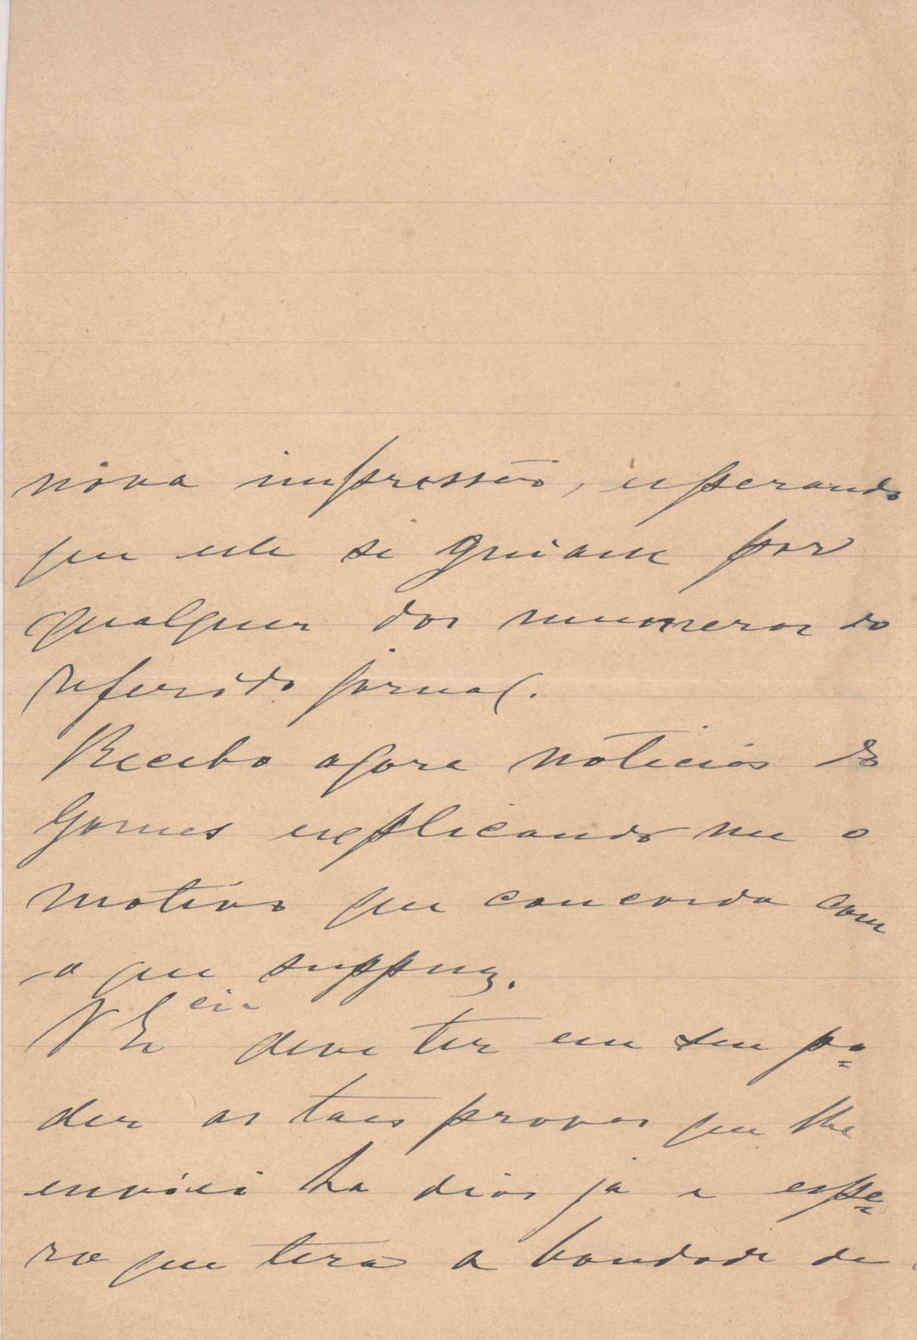 nova impressão, esperando
que elle se guiasse por
qualquer dos numeros do
referido jornal.
Recebo agora noticias do
Gomes explicando me o
motivo que concorda com
o que suppuz.
V Ex cia deve ter em seu po=
der as taes provas que lhe
enviei ha dias já e espe=
ro que terá a bondade de